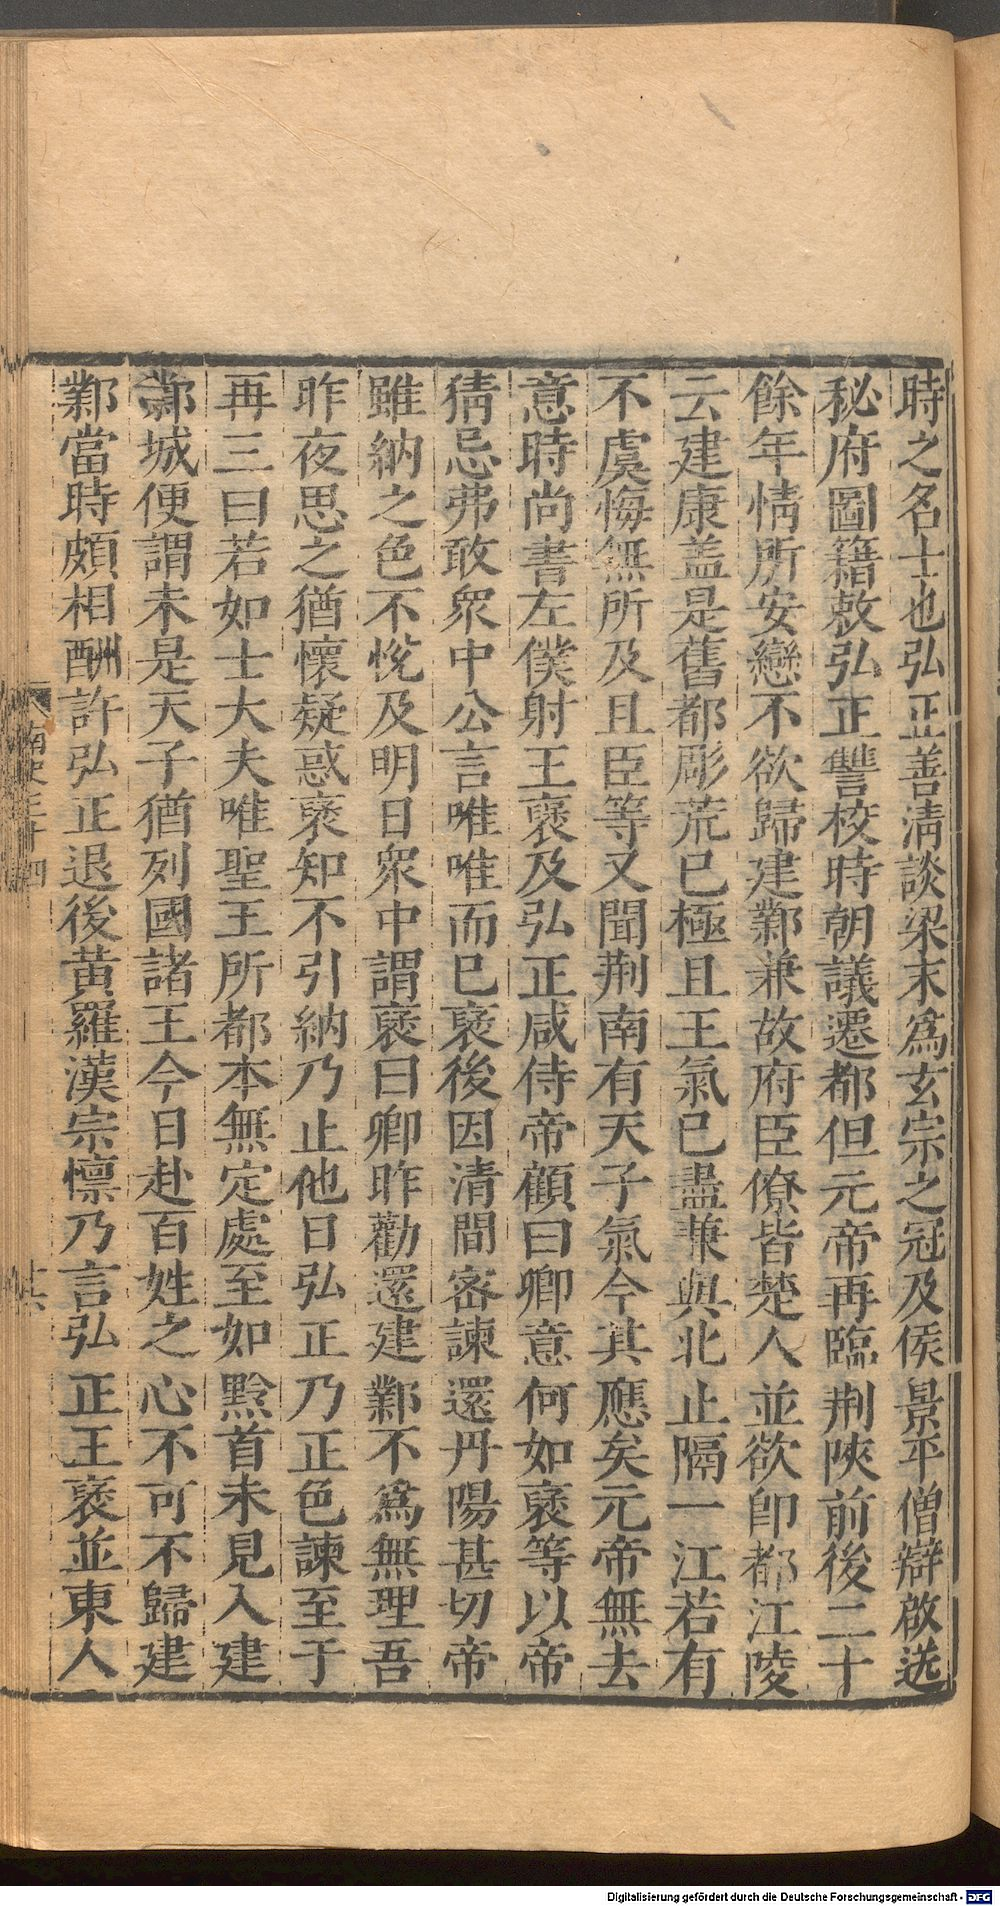 時之名士也弘正善清談梁末爲玄宗之冠及侯景平僧辯啟送
秘府圖籍敕弘正讐校時朝議遷都但元帝再臨荆陝前後二十
餘年情所安戀不欲歸建鄴兼故府臣僚皆楚人並欲卽都江陵
云建康盖是舊都彫荒已極且王氣已盡兼與北止隔一江若有
不虞悔無所及且臣等又聞荆南有天子氣今其應矣元帝無去
意時尚書左僕射王裦及弘正咸侍帝顧曰卿意何如裦等以帝
猜忌弗敢衆中公言唯唯而已裦後因清閒密諫還丹陽甚切帝
雖納之色不悅及明日衆中謂裦曰卿昨勸還建鄴不爲無理吾
昨夜思之猶懷疑惑裦知不引納乃止他日弘正乃正色諫至于
再三曰若如士大夫唯聖王所都本無定處至如黔首未見入建
鄴城便謂未是天子猶列國諸王今日赴百姓之心不可不歸建
鄴當時頗相酬許弘正退後黄羅漢宗懍乃言弘正王裦並東人
南史
Digitalisierung gefördert durch die Deutsche Forschungsgemeinschaft - DFG